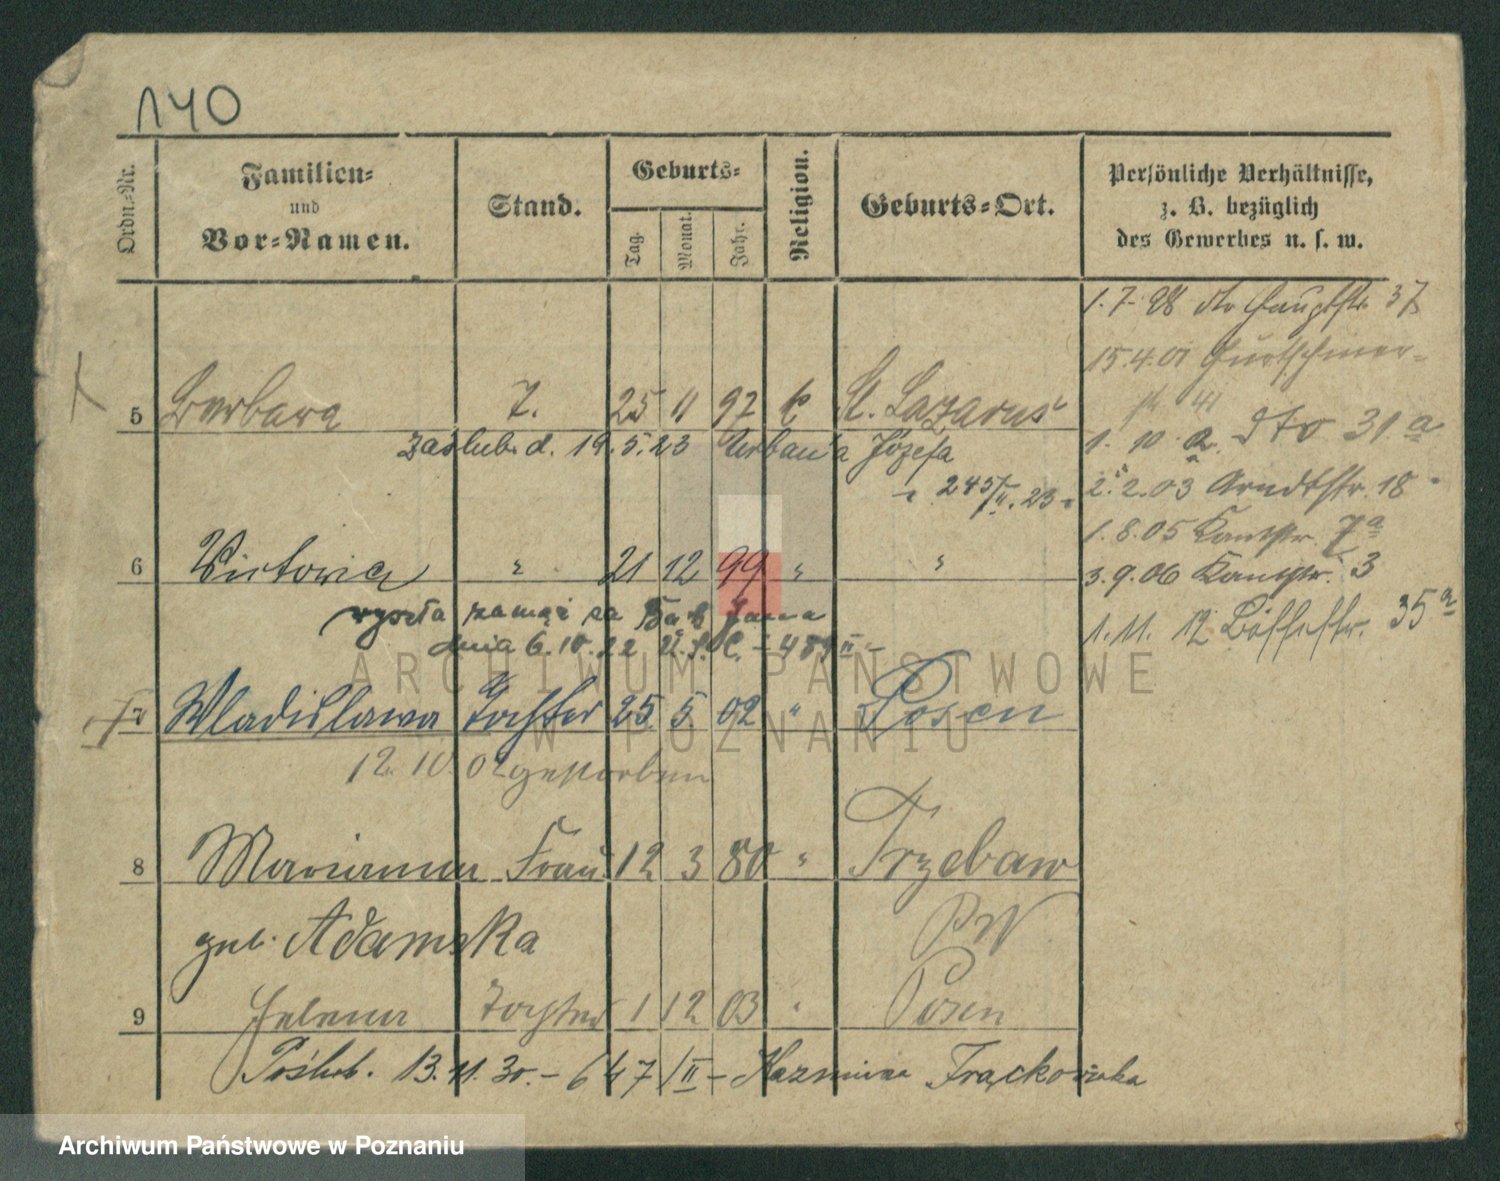 140
Ordn.-Nr.
Familien-
und
Vor-Namen.
Stand.
Geburts-
Tag.
Monat.
Jahr.
Religion.
Geburts-Ort.
Persönliche Verhältnisse,
z. B. bezüglich
des Gewerbes u. s. w.
1.7.98 dto Hauptstr. 37
15.4.01
str 41
5 Barbara T. 25 11 97 k St. Lazarus
1. 10 02. dto 31a
zaślub. d. 19.5.23 Urban'a Józefa
245/II. 23
2. 2.03 Arndtstr. 18
1.8.05 Kantstr. 7a
6 Victoria " 21 12 99 " "
3.9.06 Kantstr. 3
wyszła zamąż za Jana
dnia 6.10.22 U.S.C. - 489 II -
1.11. 12 35a
ARCHIWUM PAŃSTWOWE
W POZNANIU
7 Wladislawa Tochter 25 5. 02 " Posen
12. 10. 02 gestorben
8 Marianna Frau 12 3 80 " Trzebaw
geb. Adamska PW
9 Helena Tochter 1 12 03 " Posen
Poślub. 13.11.30. - 647/II - Kazmierza Frąckowiaka
Archiwum Państwowe w Poznaniu